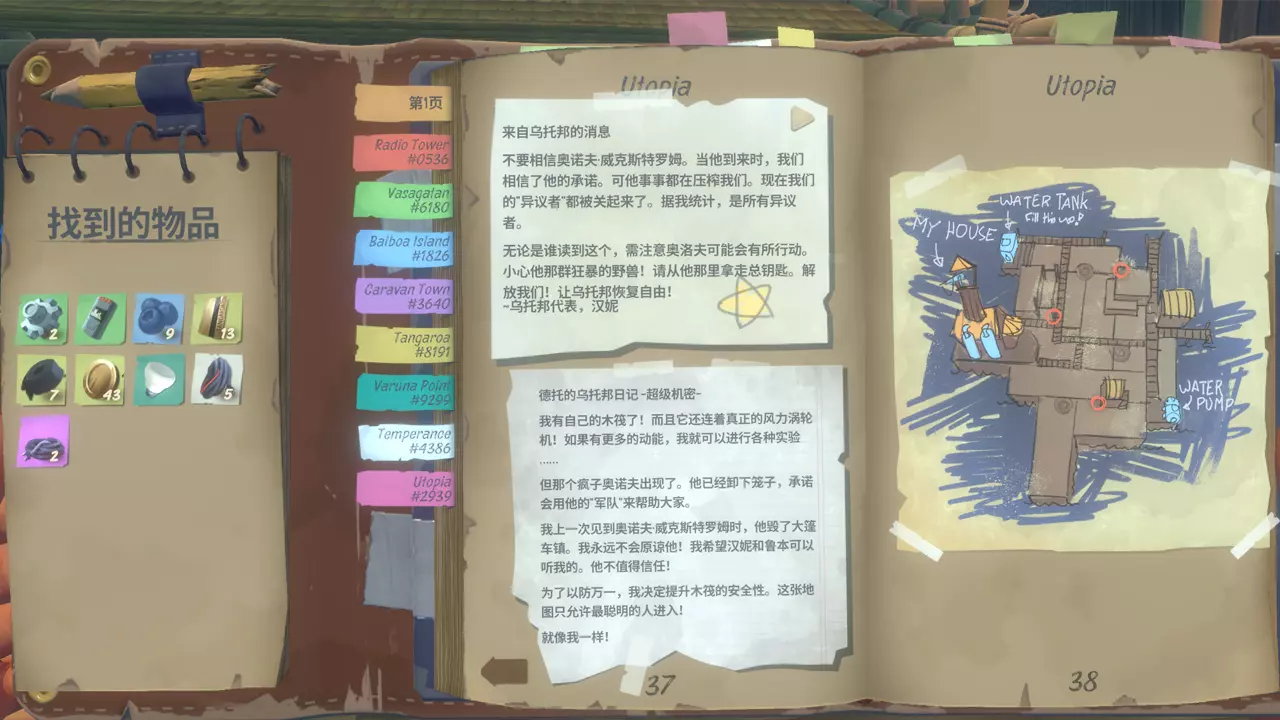 找到的物品
2
9
13
7
43
5
2
第1页
Radio Tower
#0536
Vasagatan
#6180
Balboa Island
#1826
Caravan Town
#3640
Tangaroa
#8191
Varuna Point
#9299
Temperance
#4386
Utopia
#2939
Utopia
来自乌托邦的消息
不要相信奥诺夫·威克斯特罗姆。当他到来时，我们
相信了他的承诺。可他事事都在压榨我们。现在我们
的“异议者”都被关起来了。据我统计，是所有异议
者。
无论是谁读到这个，需注意奥洛夫可能会有所行动。
小心他那群狂暴的野兽！请从他那里拿走总钥匙。解
放我们！让乌托邦恢复自由！
~乌托邦代表，汉妮
德托的乌托邦日记 -超级机密-
我有自己的木筏了！而且它还连着真正的风力涡轮
机！如果有更多的动能，我就可以进行各种实验
……
但那个疯子奥诺夫出现了。他已经卸下笼子，承诺
会用他的“军队”来帮助大家。
我上一次见到奥诺夫·威克斯特罗姆时，他毁了大篷
车镇。我永远不会原谅他！我希望汉妮和鲁本可以
听我的。他不值得信任！
为了以防万一，我决定提升木筏的安全性。这张地
图只允许最聪明的人进入！
就像我一样！
37
Utopia
WATER TANK
Fill the up!
MY HOUSE
WATER
PUMP
38